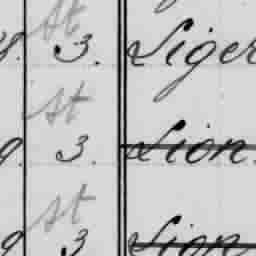 st
8. 3. Siger
st
9. 3. Lion.
st
9 3 Lion